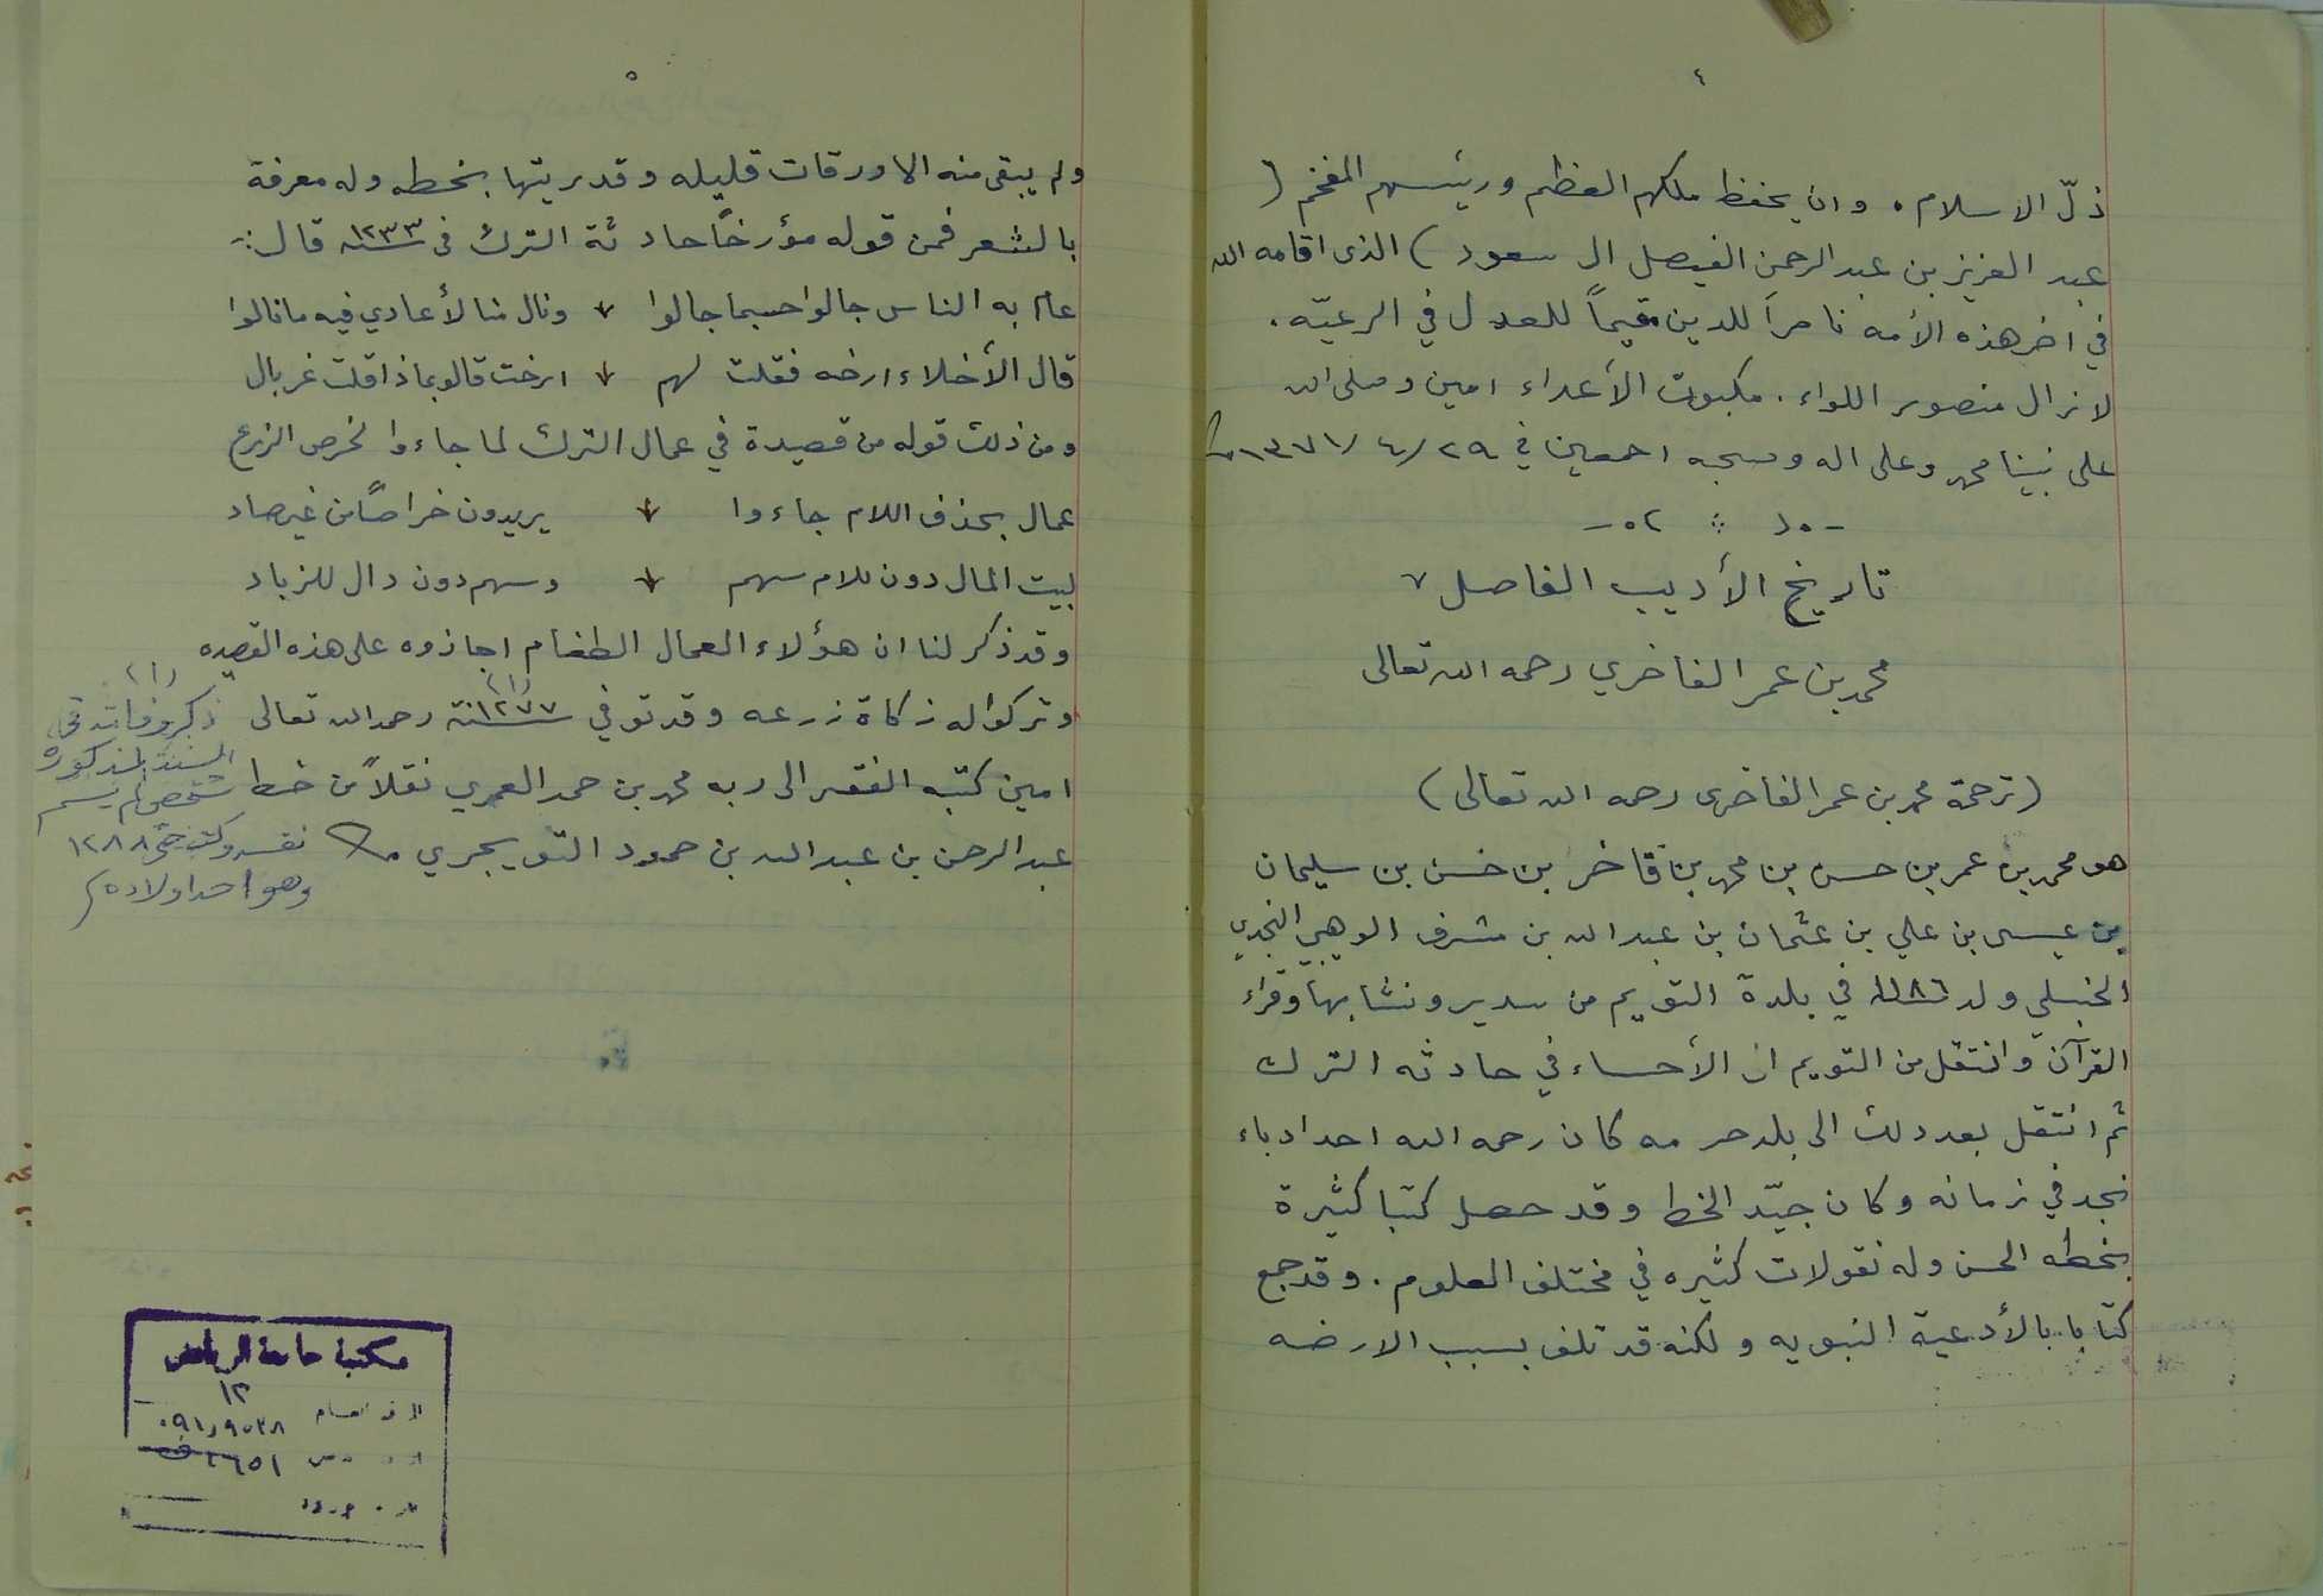 ٤
ذلّ الاسلام. وان يحفظ ملكهم العظم ورئيسهم المفخم (
عبد العزيز بن عبد الرحمن الفيصل ال سعود) الذى اقامه الله
في اخر هذه الأمه ناصراً للدين مقيماً للعدل في الرعيّه.
لا زال منصور اللواء. مكبوت الأعداء امين وصلى الله
على نبينا محمد وعلى اله وصحبه اجمعين في ٢٩/ ٤/ ١٣٧١
تاريخ الأديب الفاضل
محمد بن عمر الفاخري رحمه الله تعالى
(ترجمة محمد بن عمر الفاخرى رحمه الله تعالى)
هو محمد بن عمر بن حسن بن محمد بن فاخر بن حسن بن سليمان
بن عيسى بن علي بن عثمان بن عبد الله بن مشرف الوهيبي النجدي
الحنبلي ولد ١١٨٦ في بلدة التويم من سدير ونشا بها وقراء
القرآن وانتقل من التويم ال الأحساء في حادثه الترك
ثم انتقل بعد ذلك الى بلد حرمه كان رحمه الله احد ادباء
نجد في زمانه وكان جيّد الخط وقد حصل كتبا كثيرة
بخطه الحسن وله نقولات كثيره في مختلف العلوم. وقد جمع
كتابا بالأدعية النبويه ولكنه قد تلف بسبب الارضه
٥
ولم يبقى منه الا ورقات قليله وقد ريتها بخطه وله معرفة
بالشعر فمن قوله مؤرخاً حادثة الترك فى سنه ١٢٣٣ قال:-
عام به الناس جالوا حسبما جالوا ونال منا الأعادي فيه ما نالوا
قال الأخلاء ارخه فقلت لهم ارخت قالو بماذا قلت غربال
ومن ذلك قوله من قصيدة في عمال الترك لما جاءوا لخرص الزرع
عمال بحذف اللام جاءوا يريدون خراصاً من غير صاد
لبيت المال دون للام سهم وسهم دون دال للزباد
وقد ذكر لنا ان هؤلاء العمال الطغام اجازوه على هذه القصيده
وتركوا له زكاة زرعه وقد توفي سنة ١٢٧٧ (١) رحمه الله تعالى
امين كتبه الفقير الى ربه محمد بن حمد العمري نقلاً من خط
عبد الرحمن بن عبد الله بن حمود التويجري
(١)
ذكر وفاته في
السنة المذكورة
شخص لم يسم
نفسه وكتب حتى ١٢٨٨
وهو احد اولاده)
مكتبة جامعة الرياض
١٢